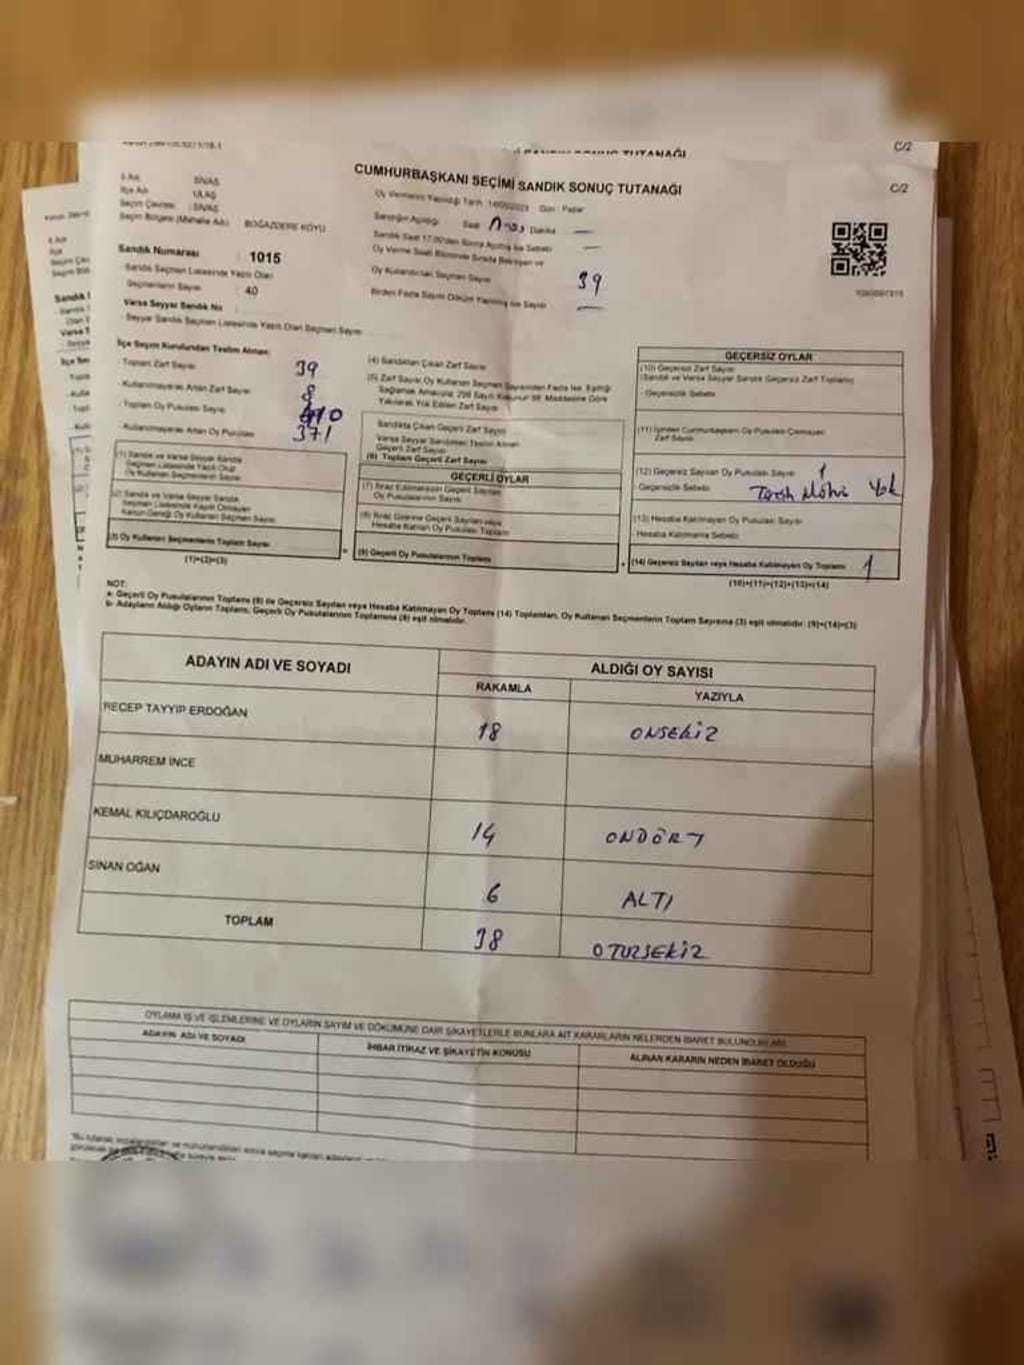 C/2
CUMHURBAŞKANI SEÇİMİ SANDIK SONUÇ TUTANAĞI
C/2
İli Adı : SİVAS
İlçe Adı : ULAŞ
Seçim Çevresi : SİVAS
Seçim Bölgesi (Mahalle Adı) : BOĞAZDERE KÖYÜ
Sandık Numarası : 1015
Sandık Seçmen Listesinde Yazılı Olan
Seçmenlerin Sayısı : 40
Varsa Seyyar Sandık No :
Seyyar Sandık Seçmen Listesinde Yazılı Olan Seçmen Sayısı
Sandık Saat 17.00'den Sonra Açılmış ise Sebebi
Oy Kullandırılan Seçmen Sayısı 39
Birden Fazla Sayım Döküm Yapılmış ise Sayısı
İlçe Seçim Kurulundan Teslim Alınan:
Toplam Zarf Sayısı 39
Kullanılmayarak Artan Zarf Sayısı 8
Toplam Oy Pusulası Sayısı
Kullanılmayarak Artan Oy Pusulası 371
(1) Sandık ve Varsa Seyyar Sandık
Seçmen Listesinde Yazılı Olup
Oy Kullanan Seçmenlerin Sayısı
(2) Sandık ve Varsa Seyyar Sandık
Seçmen Listesinde Kayıtlı Olmayan
Kanun Gereği Oy Kullanan Seçmen Sayısı
(3) Oy Kullanan Seçmenlerin Toplam Sayısı
(1)+(2)=(3)
(4) Sandıktan Çıkan Zarf Sayısı
Sandıkta Çıkan Geçerli Zarf Sayısı
Varsa Seyyar Sandıktan Teslim Alınan
Geçerli Zarf Sayısı
(6) Toplam Geçerli Zarf Sayısı
GEÇERLİ OYLAR
(7) İtiraz Edilmeksizin Geçerli Sayılan
Oy Pusulalarının Sayısı
(8) İtiraz Üzerine Geçerli Sayılan veya
Hesaba Katılan Oy Pusulası Toplamı
(9) Geçerli Oy Pusulalarının Toplamı
GEÇERSİZ OYLAR
(10) Geçersiz Zarf Sayısı
(Sandık ve Varsa Seyyar Sandık Geçersiz Zarf Toplamı)
Geçersizlik Sebebi
(11) İçinden Cumhurbaşkanı Oy Pusulası Çıkmayan
Zarf Sayısı
(12) Geçersiz Sayılan Oy Pusulası Sayısı 1
Geçersizlik Sebebi Yok
(13) Hesaba Katılmayan Oy Pusulası Sayısı
Hesaba Katılmama Sebebi
(14) Geçersiz Sayılan veya Hesaba Katılmayan Oy Toplamı 1
(10)+(11)+(12)+(13)=(14)
NOT:
a- Geçerli Oy Pusulalarının Toplamı (9) ile Geçersiz Sayılan veya Hesaba Katılmayan Oy Toplamı (14) Toplamları, Oy Kullanan Seçmenlerin Toplam Sayısına (3) eşit olmalıdır. (9)+(14)=(3)
b- Adayların Aldığı Oyların Toplamı, Geçerli Oy Pusulalarının Toplamına (9) eşit olmalıdır.
ADAYIN ADI VE SOYADI
ALDIĞI OY SAYISI
RAKAMLA YAZIYLA
RECEP TAYYİP ERDOĞAN 18 ONSEKİZ
MUHARREM İNCE
KEMAL KILIÇDAROĞLU 14 ONDÖRT
SİNAN OĞAN 6 ALTI
TOPLAM 38 OTUZSEKİZ
OYLAMA İŞ VE İŞLEMLERİNE VE OYLARIN SAYIM VE DÖKÜMÜNE DAİR ŞİKAYETLERLE BUNLARA AİT KARARLARIN NELERDEN İBARET BULUNDUKLARI
ADAYIN ADI VE SOYADI
İHBAR İTİRAZ VE ŞİKAYETİN KONUSU
ALINAN KARARIN NEDEN İBARET OLDUĞU